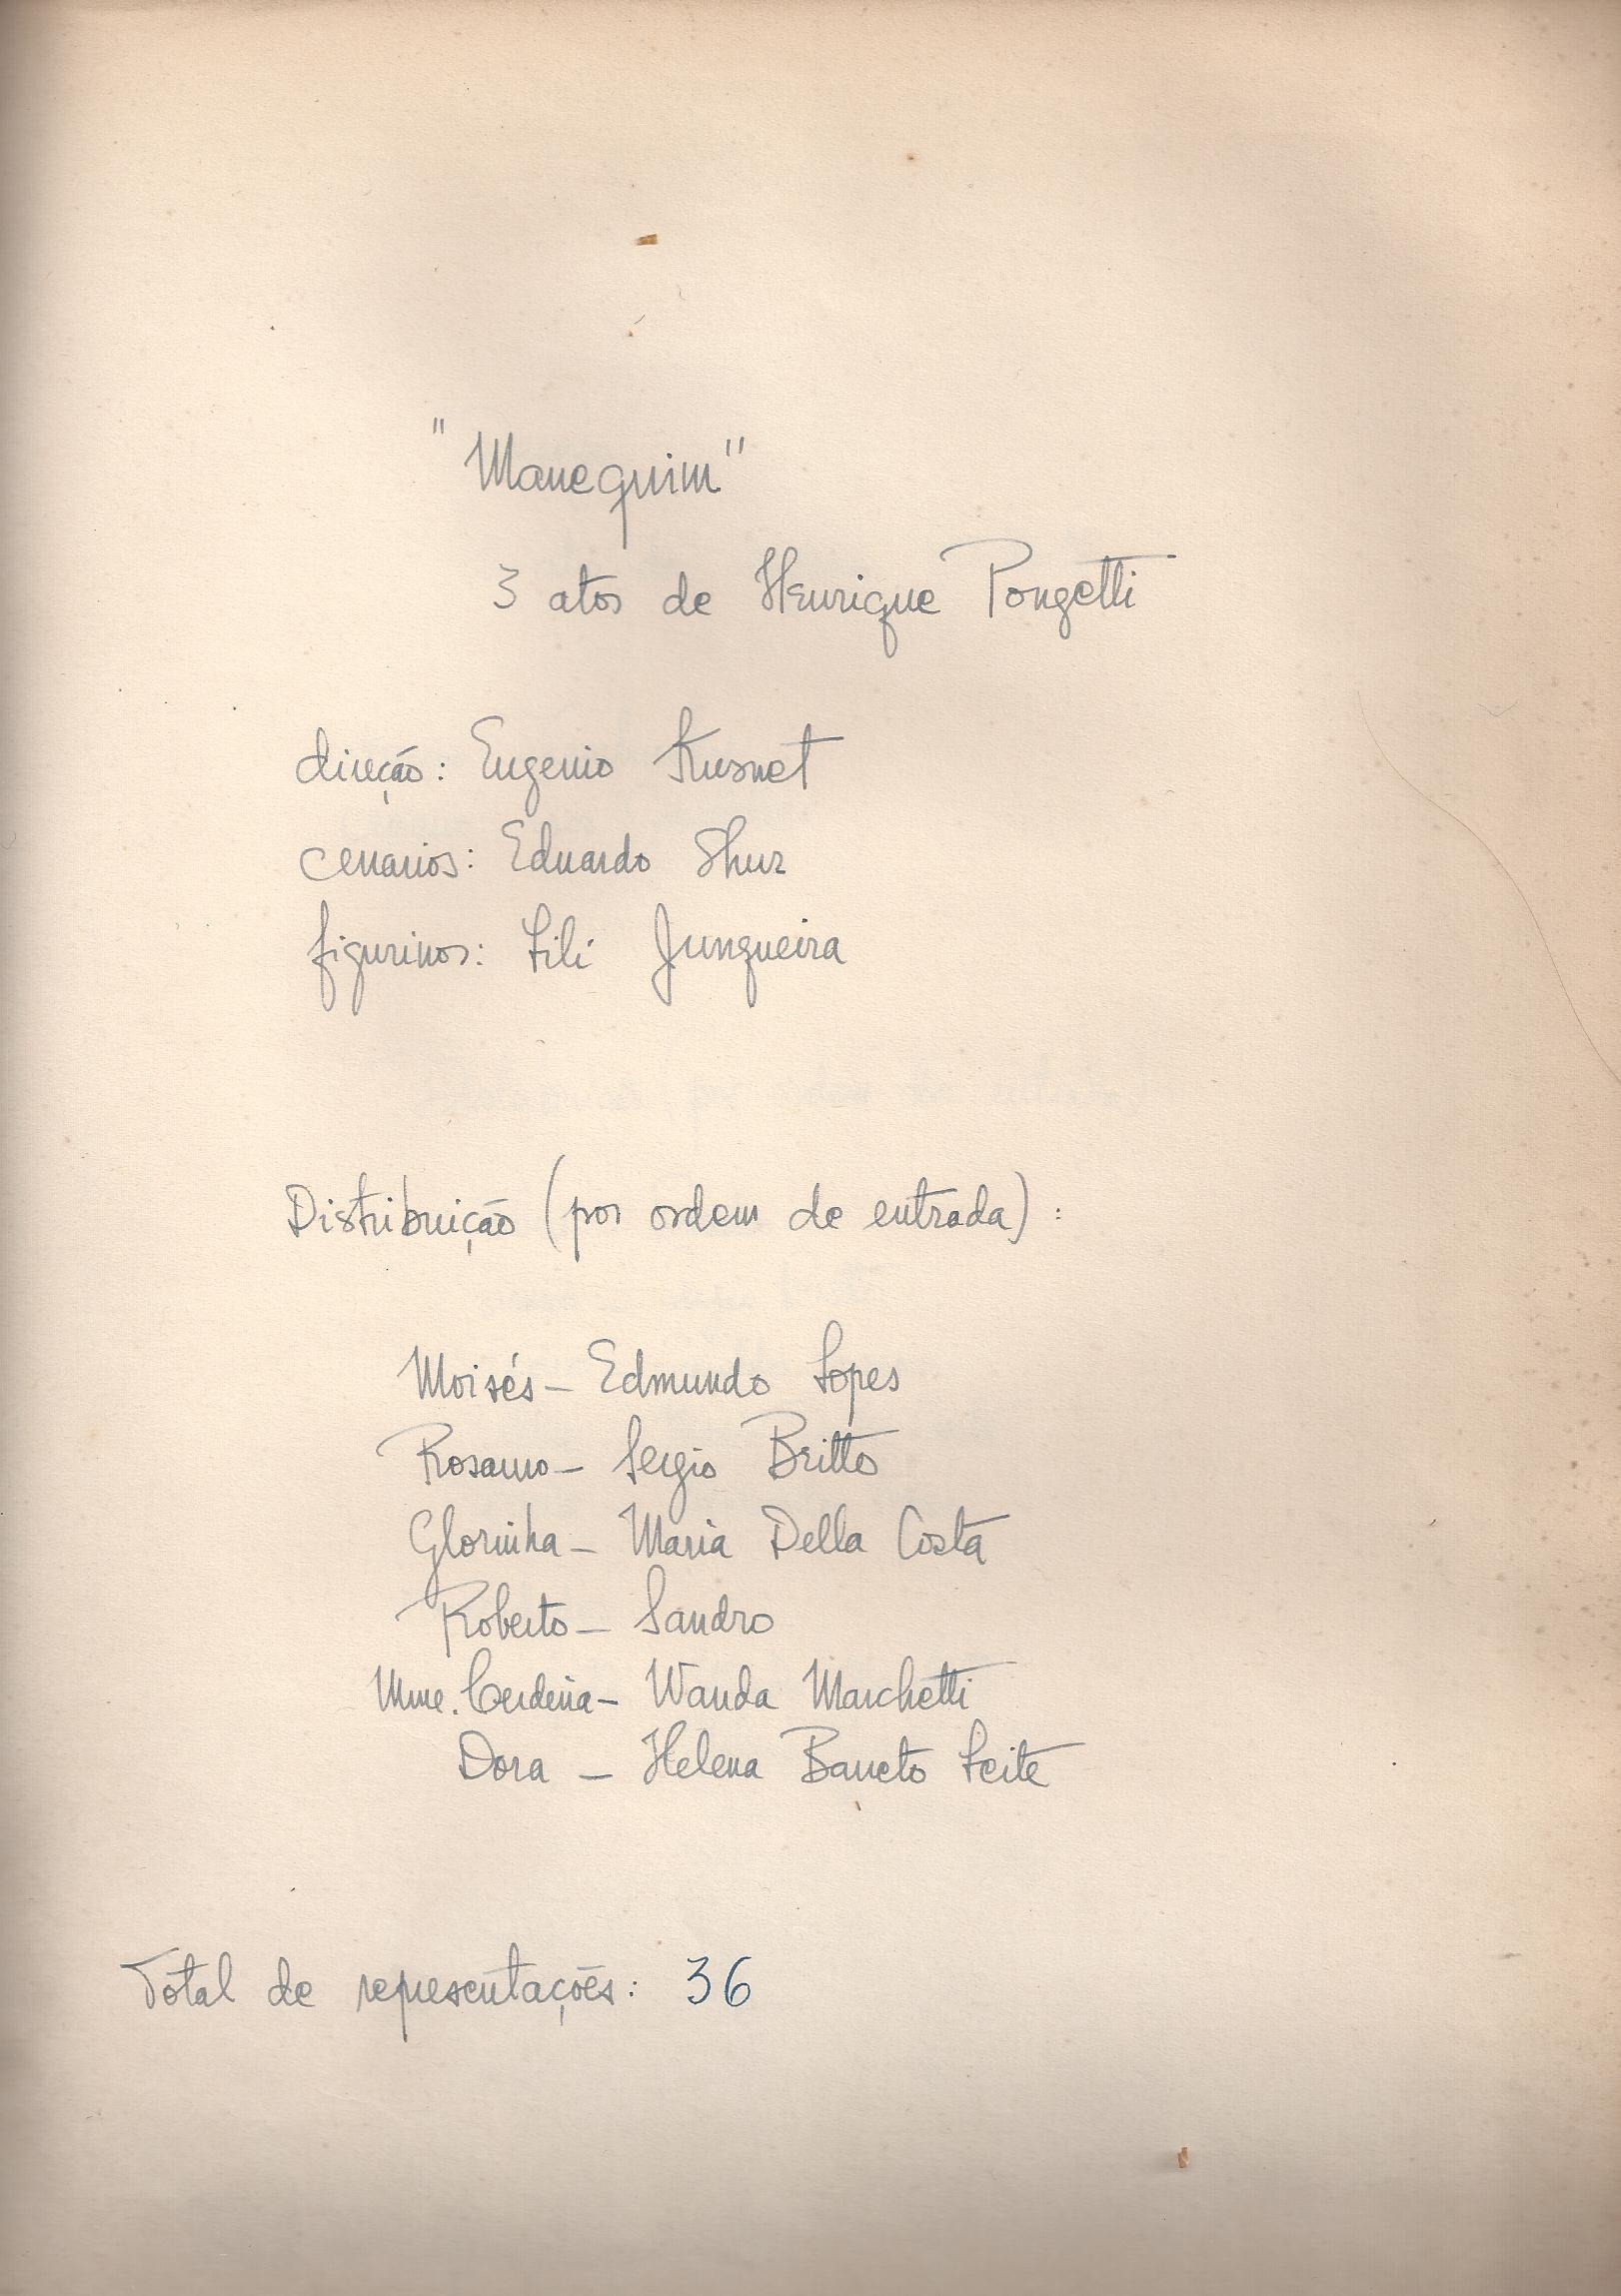 "Manequim"
3 atos de Henrique Pongetti
direção: Eugenio Kusnet
cenarios: Eduardo Shur
figurinos: Lili Junqueira
Distribuição (por ordem de entrada):
Moisés - Edmundo Lopes
Rosamo - Sergio Britto
Glorinha - Maria Della Costa
Roberto - Sandro
Mme. Cerdeira - Wanda Marchetti
Dora - Helena Barreto Leite
Total de representações: 36